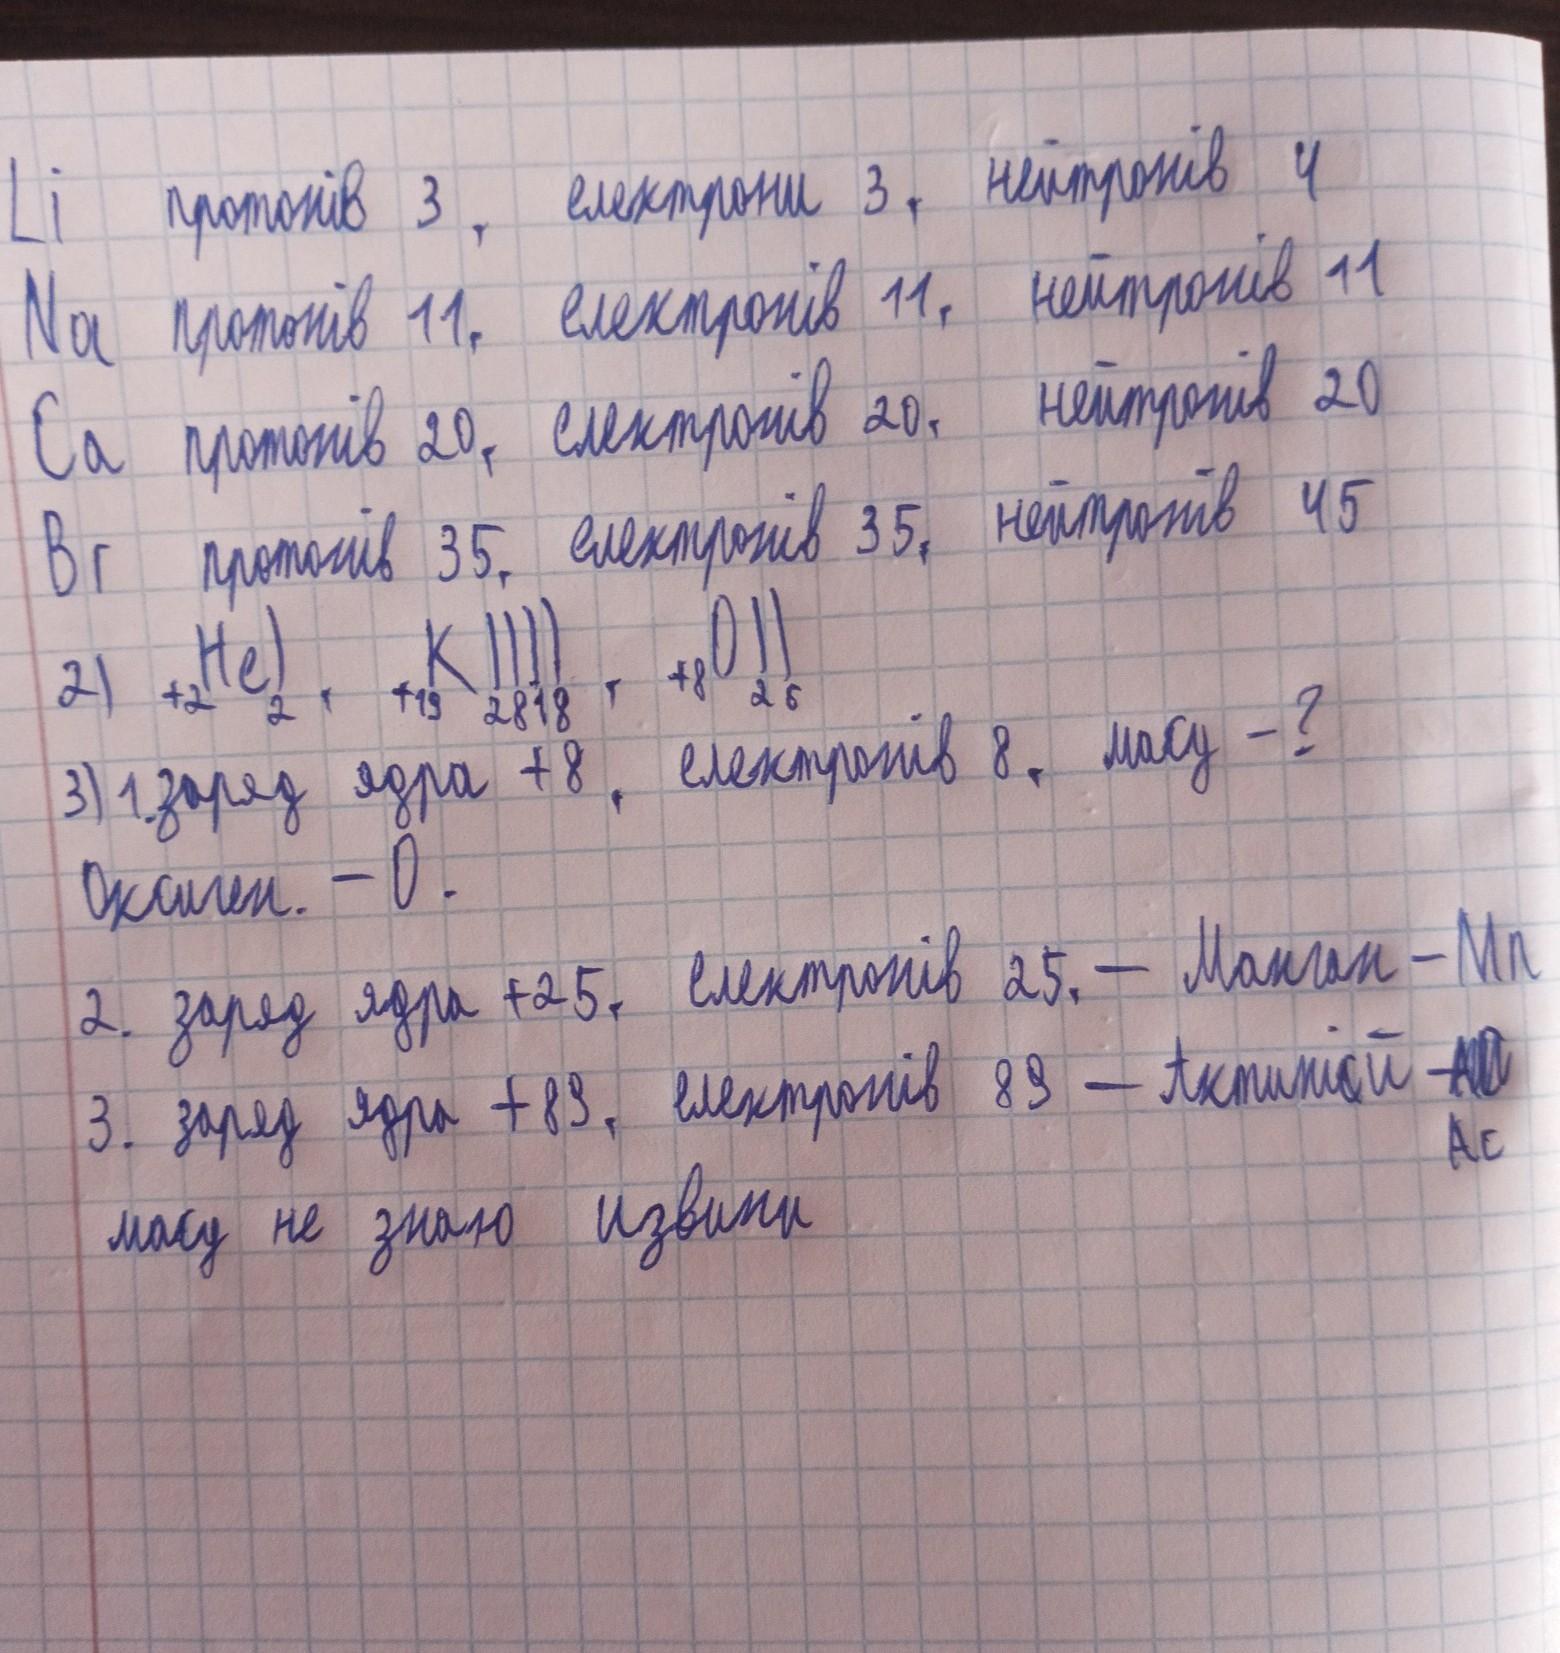 Li протонів 3, електрони 3, нейтронів 4
Na протонів 11, електронів 11, нейтронів 11
Ca протонів 20, електронів 20, нейтронів 20
Br протонів 35, електронів 35, нейтронів 45
2) +2He)2, +19K))))2818, +8O))26
3) 1. заряд ядра +8, електронів 8, масу - ?
Оксиген. - O.
2. заряд ядра +25, електронів 25, - Манган - Mn
3. заряд ядра +89, електронів 89 - Актиній -
Ac
масу не знаю извини